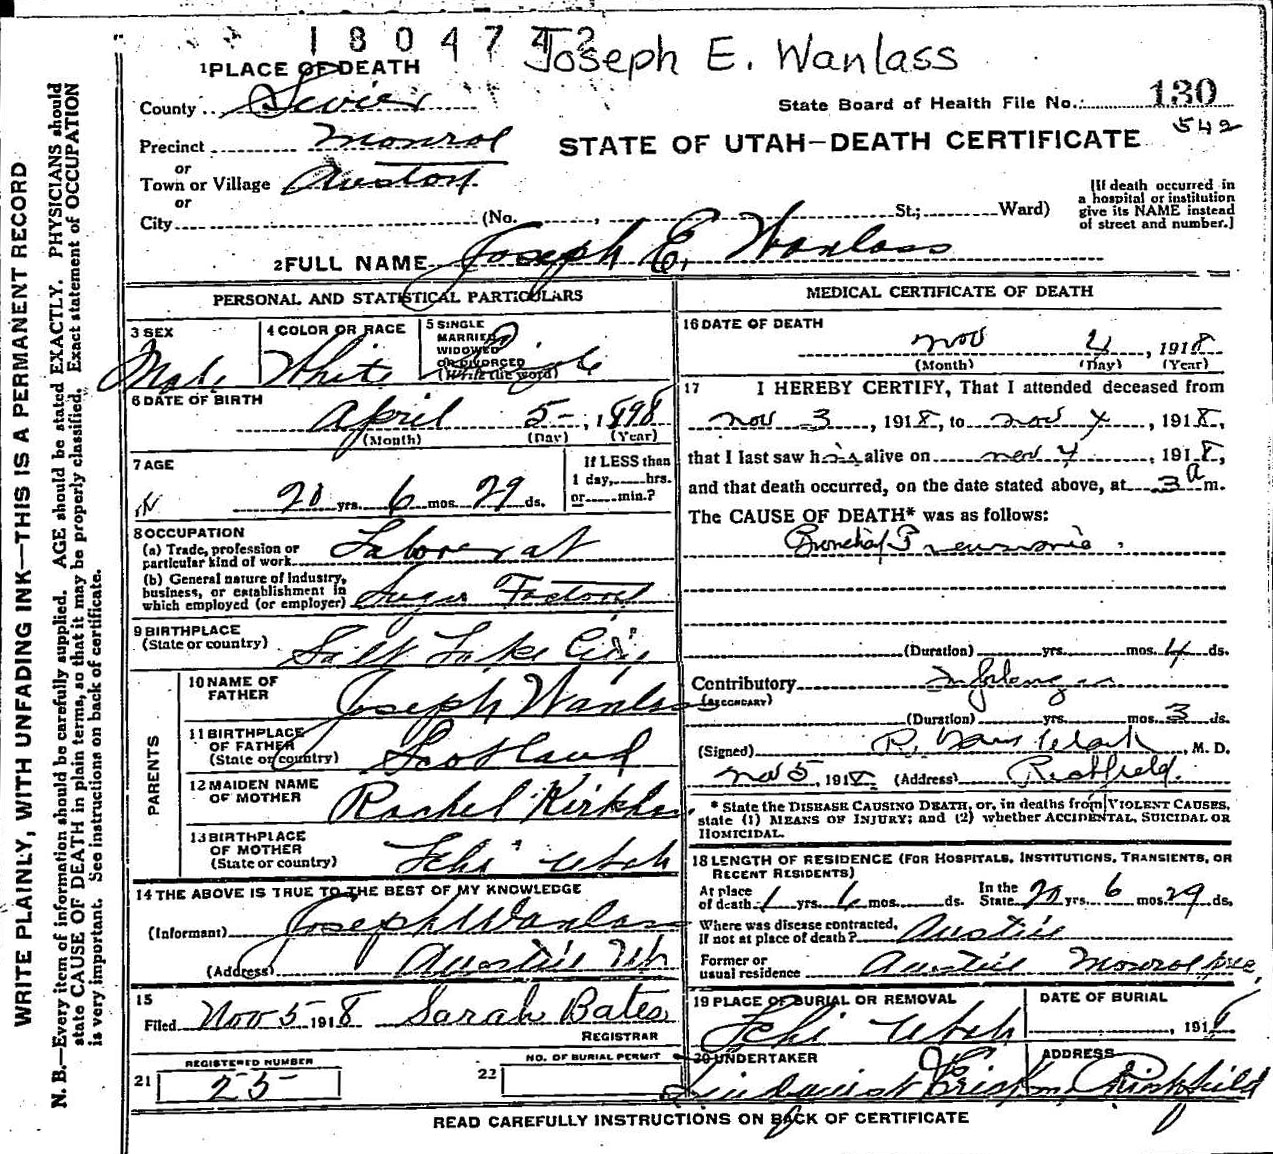 1 8 0 4 7 4 2
Joseph E. Wanlass
1 PLACE OF DEATH
County Sevier
State Board of Health File No. 130
542
Precinct Monroe
STATE OF UTAH—DEATH CERTIFICATE
or
Town or Village Austin
or
City (No. , St.; Ward)
[If death occurred in
a hospital or institution
give its NAME instead
of street and number.]
2 FULL NAME Joseph E. Wanlass
PERSONAL AND STATISTICAL PARTICULARS
3 SEX
Male
4 COLOR OR RACE
White
5 SINGLE
MARRIED
WIDOWED
OR DIVORCED
(Write the word)
Single
6 DATE OF BIRTH
April 5 , 1898
(Month) (Day) (Year)
7 AGE
20 yrs. 6 mos. 29 ds.
If LESS than
1 day, hrs.
or min.?
8 OCCUPATION
(a) Trade, profession or
particular kind of work Laborer at
(b) General nature of industry,
business, or establishment in
which employed (or employer) Sugar Factory
9 BIRTHPLACE
(State or country) Salt Lake City
PARENTS
10 NAME OF
FATHER Joseph Wanlass
11 BIRTHPLACE
OF FATHER
(State or country) Scotland
12 MAIDEN NAME
OF MOTHER Rachel
13 BIRTHPLACE
OF MOTHER
(State or country) Lehi Utah
14 THE ABOVE IS TRUE TO THE BEST OF MY KNOWLEDGE
(Informant) Joseph Wanlass
(Address) Austin Ut
15
Filed Nov 5 1918 Sarah Bates
REGISTRAR
REGISTERED NUMBER
21 25
NO. OF BURIAL PERMIT
22
MEDICAL CERTIFICATE OF DEATH
16 DATE OF DEATH
Nov 4 , 1918
(Month) (Day) (Year)
17 I HEREBY CERTIFY, That I attended deceased from
Nov 3 , 1918, to Nov 4 , 1918,
that I last saw him alive on Nov 4 , 1918,
and that death occurred, on the date stated above, at 3 a m.
The CAUSE OF DEATH* was as follows:
Bronchial Pneumonia.
(Duration) yrs. mos. 4 ds.
Contributory Influenza
(SECONDARY)
(Duration) yrs. mos. 3 ds.
(Signed) Clark, M. D.
Nov 5, 191 (Address) Richfield.
* State the DISEASE CAUSING DEATH, or, in deaths from VIOLENT CAUSES,
state (1) MEANS OF INJURY; and (2) whether ACCIDENTAL, SUICIDAL OR
HOMICIDAL.
18 LENGTH OF RESIDENCE (FOR HOSPITALS, INSTITUTIONS, TRANSIENTS, OR
RECENT RESIDENTS)
At place
of death 1 yrs. 6 mos. ds.
In the
State 20 yrs. 6 mos. 29 ds.
Where was disease contracted,
if not at place of death? Austin
Former or
usual residence Austin Monroe Prec
19 PLACE OF BURIAL OR REMOVAL
Lehi Utah
DATE OF BURIAL
, 191
20 UNDERTAKER
Lindquist
ADDRESS
Richfield
READ CAREFULLY INSTRUCTIONS ON BACK OF CERTIFICATE
WRITE PLAINLY, WITH UNFADING INK—THIS IS A PERMANENT RECORD
N. B.—Every item of information should be carefully supplied. AGE should be stated EXACTLY. PHYSICIANS should
state CAUSE OF DEATH in plain terms, so that it may be properly classified. Exact statement of OCCUPATION
is very important. See instructions on back of certificate.